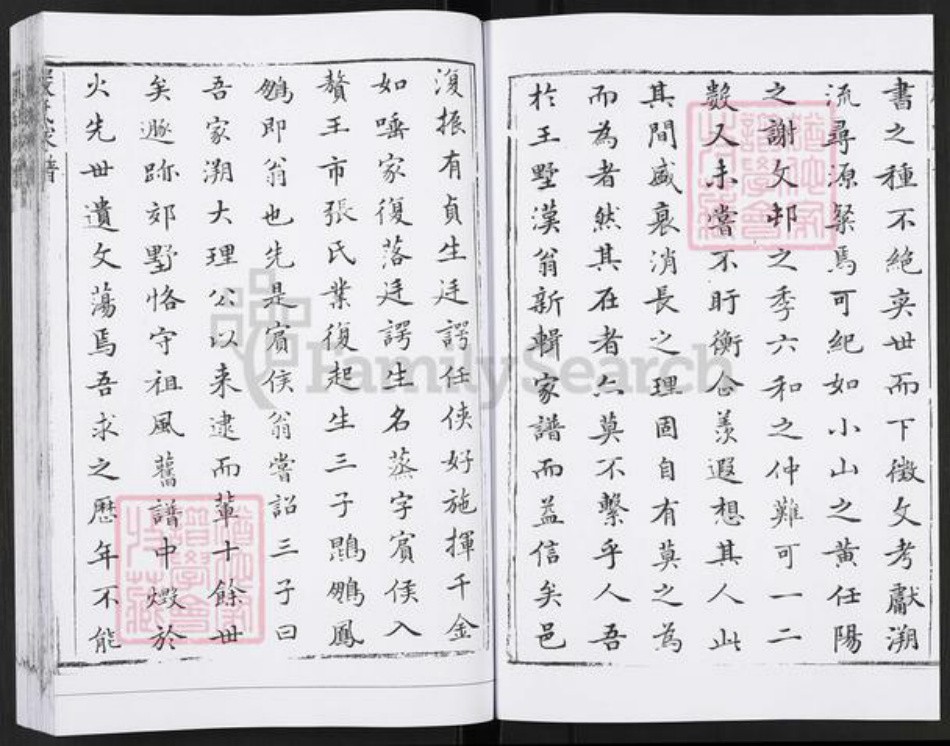 書之種不絕奕世而下徵文考獻溯
流尋源粲焉可紀如小山之黃任陽
之謝文邨之季六和之仲難可一二
數又未嘗不盱衡仝羨遐想其人此
其間盛衰消長之理固自有莫之為
而為者然其在者亦莫不繫乎人吾
於王墅漢翁新輯家譜而益信矣邑
復振有貞生廷諤任俠好施揮千金
如唾家復落廷諤生名蒸字賓侯入
贅王市張氏業復起生三子鵾鵷鳳
鵷即翁也先是賓侯翁嘗詔三子曰
吾家溯大理公以來逮而輩十餘世
矣遯跡郊墅恪守祖風舊譜中燬於
火先世遺文蕩焉吾求之歷年不能
氏家譜
FamilySearch